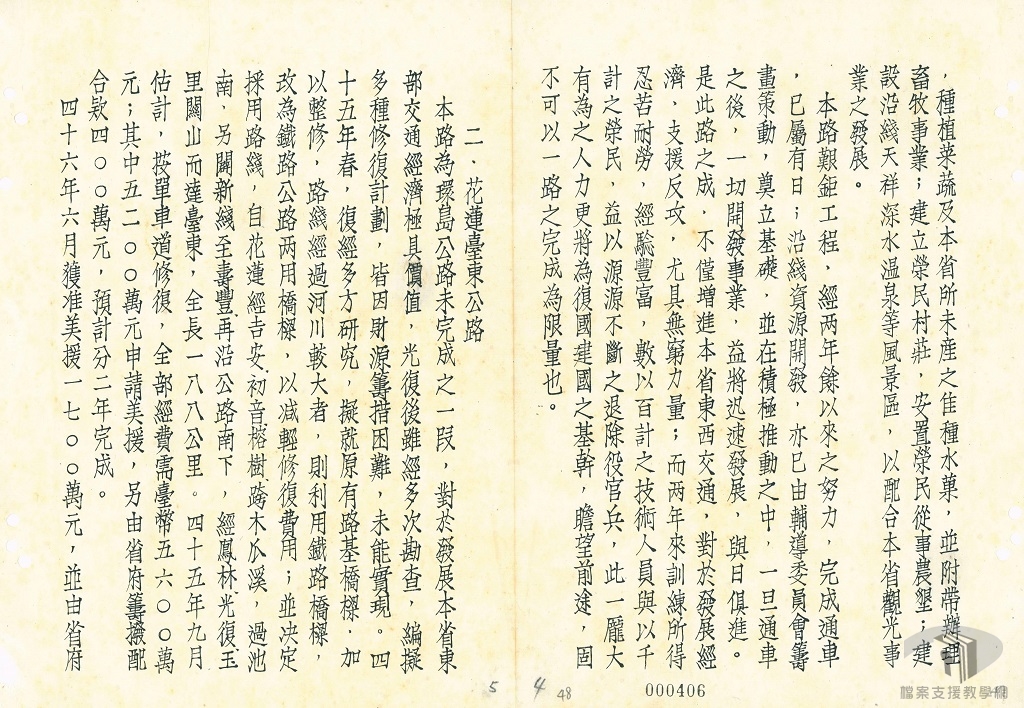 ，種植菜蔬及本省所未産之佳種水菓，並附帶辦理
畜牧事業；建立榮民村莊，安置榮民從事農墾；建
設沿綫天祥深水温泉等風景區，以配合本省觀光事
業之發展。
本路艱鉅工程，經两年餘以來之努力，完成通車
，已屬有日；沿綫資源開發，亦已由輔導委員會籌
畫策動，奠立基礎，並在積極推動之中，一旦通車
之後，一切開發事業，益將迅速發展，與日俱進。
是此路之成，不僅增進本省東西交通，對於發展經
濟，支援反攻，尤具無窮力量；而两年來訓練所得
忍苦耐勞，經驗豐富，數以百計之技術人員與以千
計之榮民，益以源源不斷之退除役官兵，此一龐大
有為之人力更將為復國建國之基幹，瞻望前途，固
不可以一路之完成為限量也。
二．花蓮臺東公路
本路為環島公路未完成之一段，對於發展本省東
部交通經濟極具價值，光復後雖經多次勘查，編擬
多種修復計劃，皆因財源籌措困難，未能實現。四
十五年春，復經多方研究，擬就原有路基橋樑，加
以整修，路綫經過河川較大者，則利用鐵路橋樑，
改為鐵路公路两用橋樑，以减輕修復費用；並决定
採用路綫，自花蓮經吉安初音榕樹跨木瓜溪，過池
南，另闢新綫至壽豐再沿公路南下，經鳳林光復玉
里關山而達臺東，全長一八八公里。四十五年九月
估計，按單車道修復，全部經費需臺幣五六００萬
元；其中五二００萬元申請美援，另由省府籌撥配
合款四００萬元，預計分二年完成。
四十六年六月獲准美援一七００萬元，並由省府
5
4
48
000406
檔案支援教學網